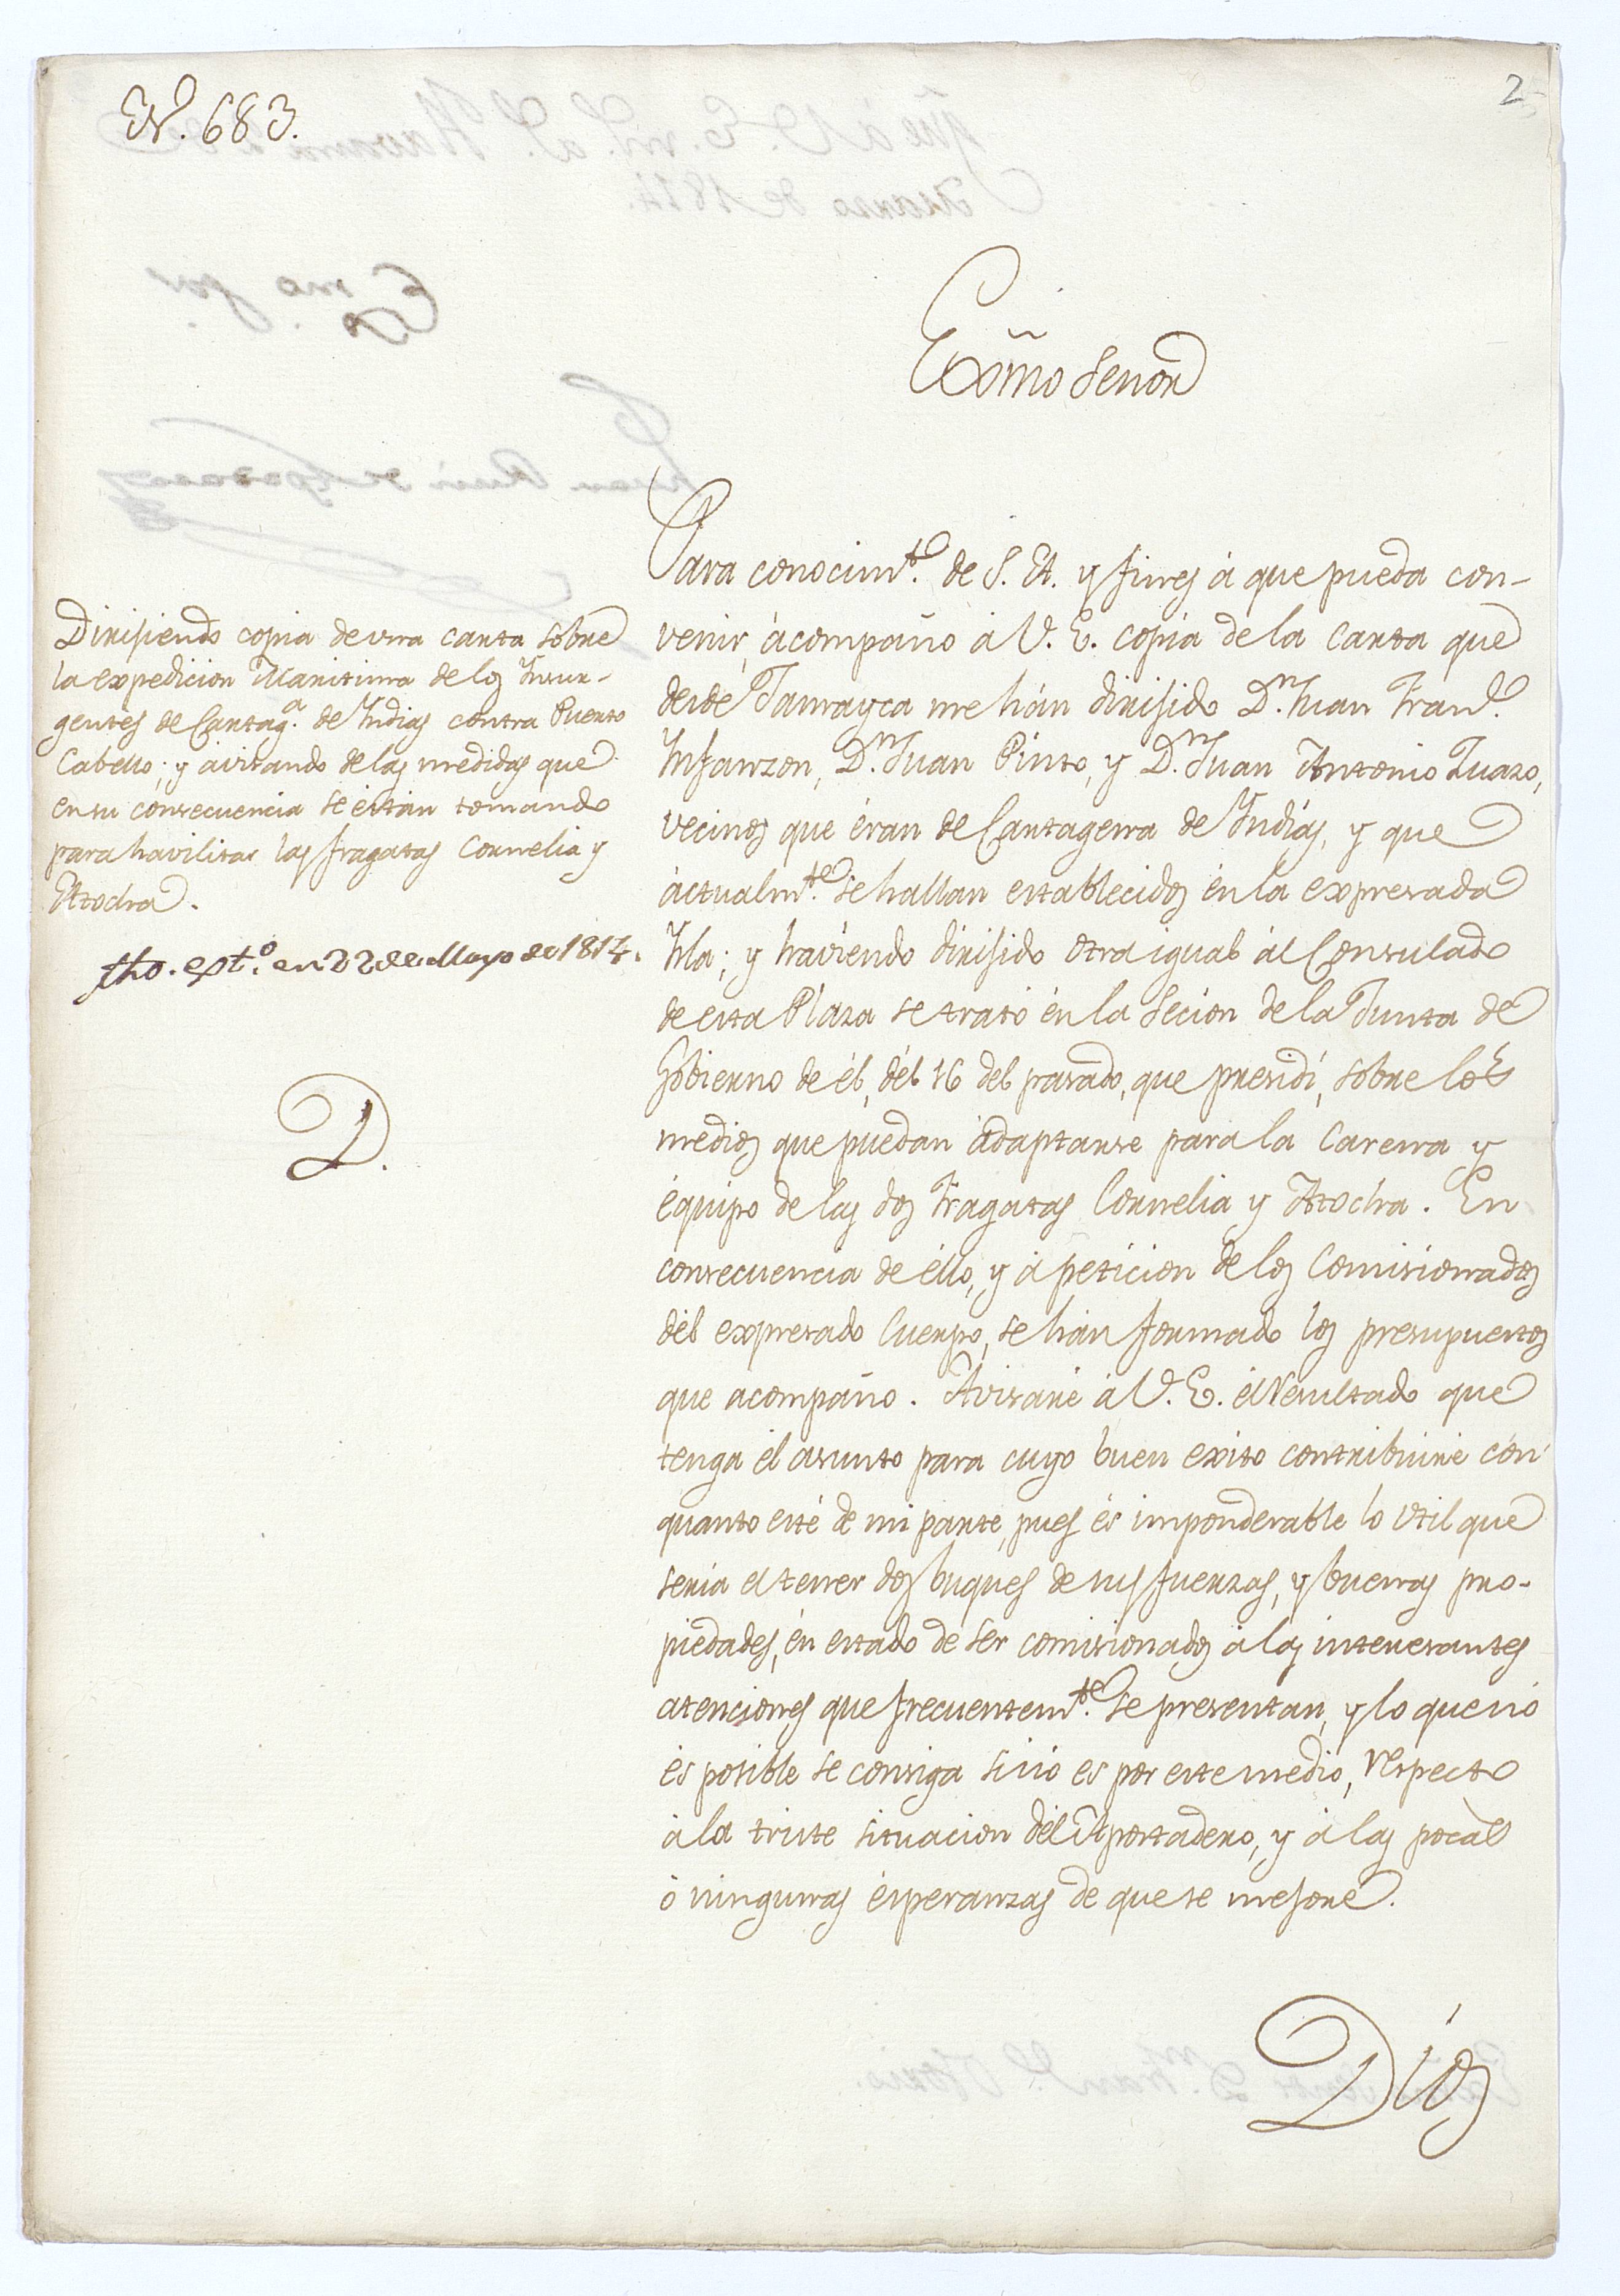 N.º 683.
2
Exmõ Señor
Dirijiendo copia de una carta sobre
la expedicion Maritima de los Insur-
gentes de Cartag.a de Indias contra Puerto
Cabello; y avisando de las medidas que
en su consecuencia se están tomando
para havilitar las fragatas Cornelia y
Atocha.
fho. ext.º en 22 de Mayo de 1814.
D.
Para conocim.to de S. A. y fines á que pueda con-
venir, ácompaño á V. E. copia de la carta que
desde Jamayca me hán dirijido D.n Juan Fran.co
Infanzon, D.n Juan Pinto, y D.n Juan Antonio Zuazo,
vecinos que éran de Cartagena de Indias, y que
áctualm.te se hallan establecidos én la expresada
Isla; y haviendo dirijido otra igual ál Consulado
de esta Plaza se trató én la Secion de la Junta de
Gobierno de él, dél 16 del pasado, que presidí, sobre los
medios que puedan ádaptarse para la Carena y
équipo de las dos Fragatas Cornelia y Atocha. En
consecuencia de éllo, y á peticion de los Comisionados
dél expresado Cuerpo, se hán formado los presupuestos
que acompaño. Avisaré á V. E. él resultado que
tenga él asunto para cuyo buen exito contribuiré con
quanto esté de mi parte, pues és imponderable lo util que
seria el tener dos buques de sus fuerzas, y buenas pro-
piedades, én estado de ser comisionados á las interesantes
atenciones que frecuentem.te se presentan, y lo que nó
és posible se consiga sinó es por este medio, respecto
á la triste situacion dél Apostadero, y á las pocas
ó ningunas ésperanzas de que se mejore.
Dios